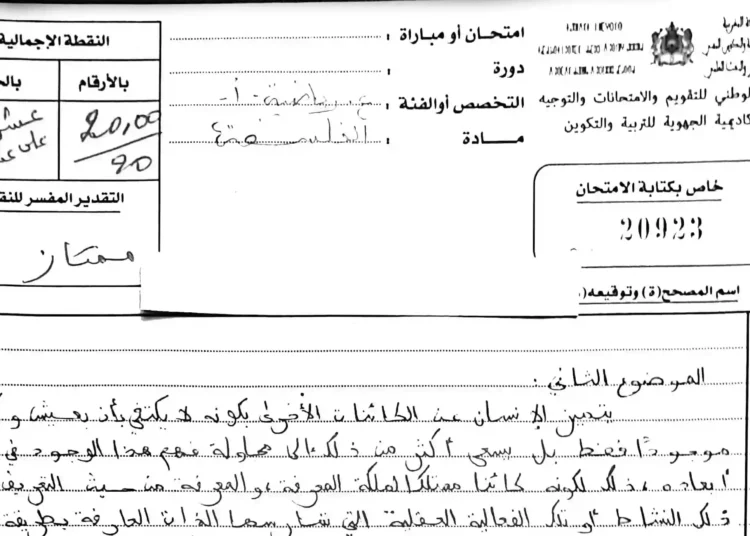 المغربية
امتحان أو مباراة :
النقطة الإجمالية
دورة :
بالأرقام
التخصص أو الفئة : ع. رياضية - أ -
الوطني للتقويم والامتحانات والتوجيه
كاديمية الجهوية للتربية والتكوين
مـــادة : الفلسفة
20,00
20
عشر
على
خاص بكتابة الامتحان
20923
التقدير المفسر للنق
ممتاز
اسم المصحح(ة) وتوقيعه(
الموضوع الثاني :
يتميز الإنسان عن الكائنات الأخرى بكونه لا يكتفي بأن يعيش و
موجودا فقط بل يسعى أكثر من ذلك إلى محاولة فهم هذا الوجود في
أبعاده، ذلك لكونه كائنا ممتلكا لملكة المعرفة، والمعرفة من حيث التعريف
ذلك النشاط أو تلك الفعالية العقلية التي تمارسها الذات العارفة بطريقة